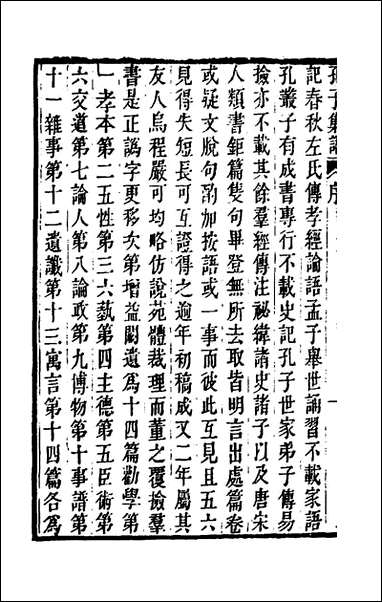 孔子集語 序 一
記春秋左氏傳孝經論語孟子舉世誦習不載家語
孔叢子有成書專行不載史記孔子世家弟子傳易
撿亦不載其餘羣經傳注祕緯諸史諸子以及唐宋
人類書鉅篇隻句畢登無所去取皆明言出處篇卷
或疑文脫句酌加按語或一事而彼此互見且五六
見得失短長可互證得之逾年初稿成又二年屬其
友人烏程嚴可均略仿說苑體裁理而董之覆撿羣
書是正譌字更移次第增益闕遺爲十四篇勸學第
一孝本第二五性第三六藝第四主德第五臣術第
六交道第七論人第八論政第九博物第十事譜第
十一雜事第十二遺讖第十三寓言第十四篇各爲